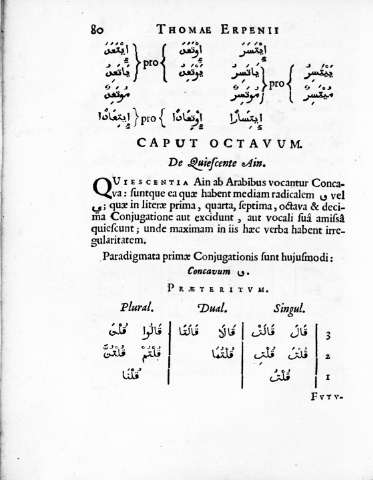 80 THOMAE ERPENII
pro
pro
pro
CAPUT OCTAVUM.
De Quiescente Ain.
QUIESCENTIA Ain ab Arabibus vocantur Conca-
va: suntque ea quæ habent mediam radicalem و vel
ي; quæ in literæ prima, quarta, septima, octava & deci-
ma Conjugatione aut excidunt, aut vocali suâ amissâ
quiescunt; unde maximam in iis hæc verba habent irre-
gularitatem.
Paradigmata primæ Conjugationis sunt hujusmodi:
Concavum و.
PRÆTERITUM.
Plural. Dual. Singul.
قَالُوا قُلْنَ | قَالَا قَالَتَا | قَالَ قَالَتْ 3
قُلْتُمْ قُلْتُنَّ | قُلْتُمَا | قُلْتَ قُلْتِ 2
قُلْنَا | | قُلْتُ 1
FUTU-